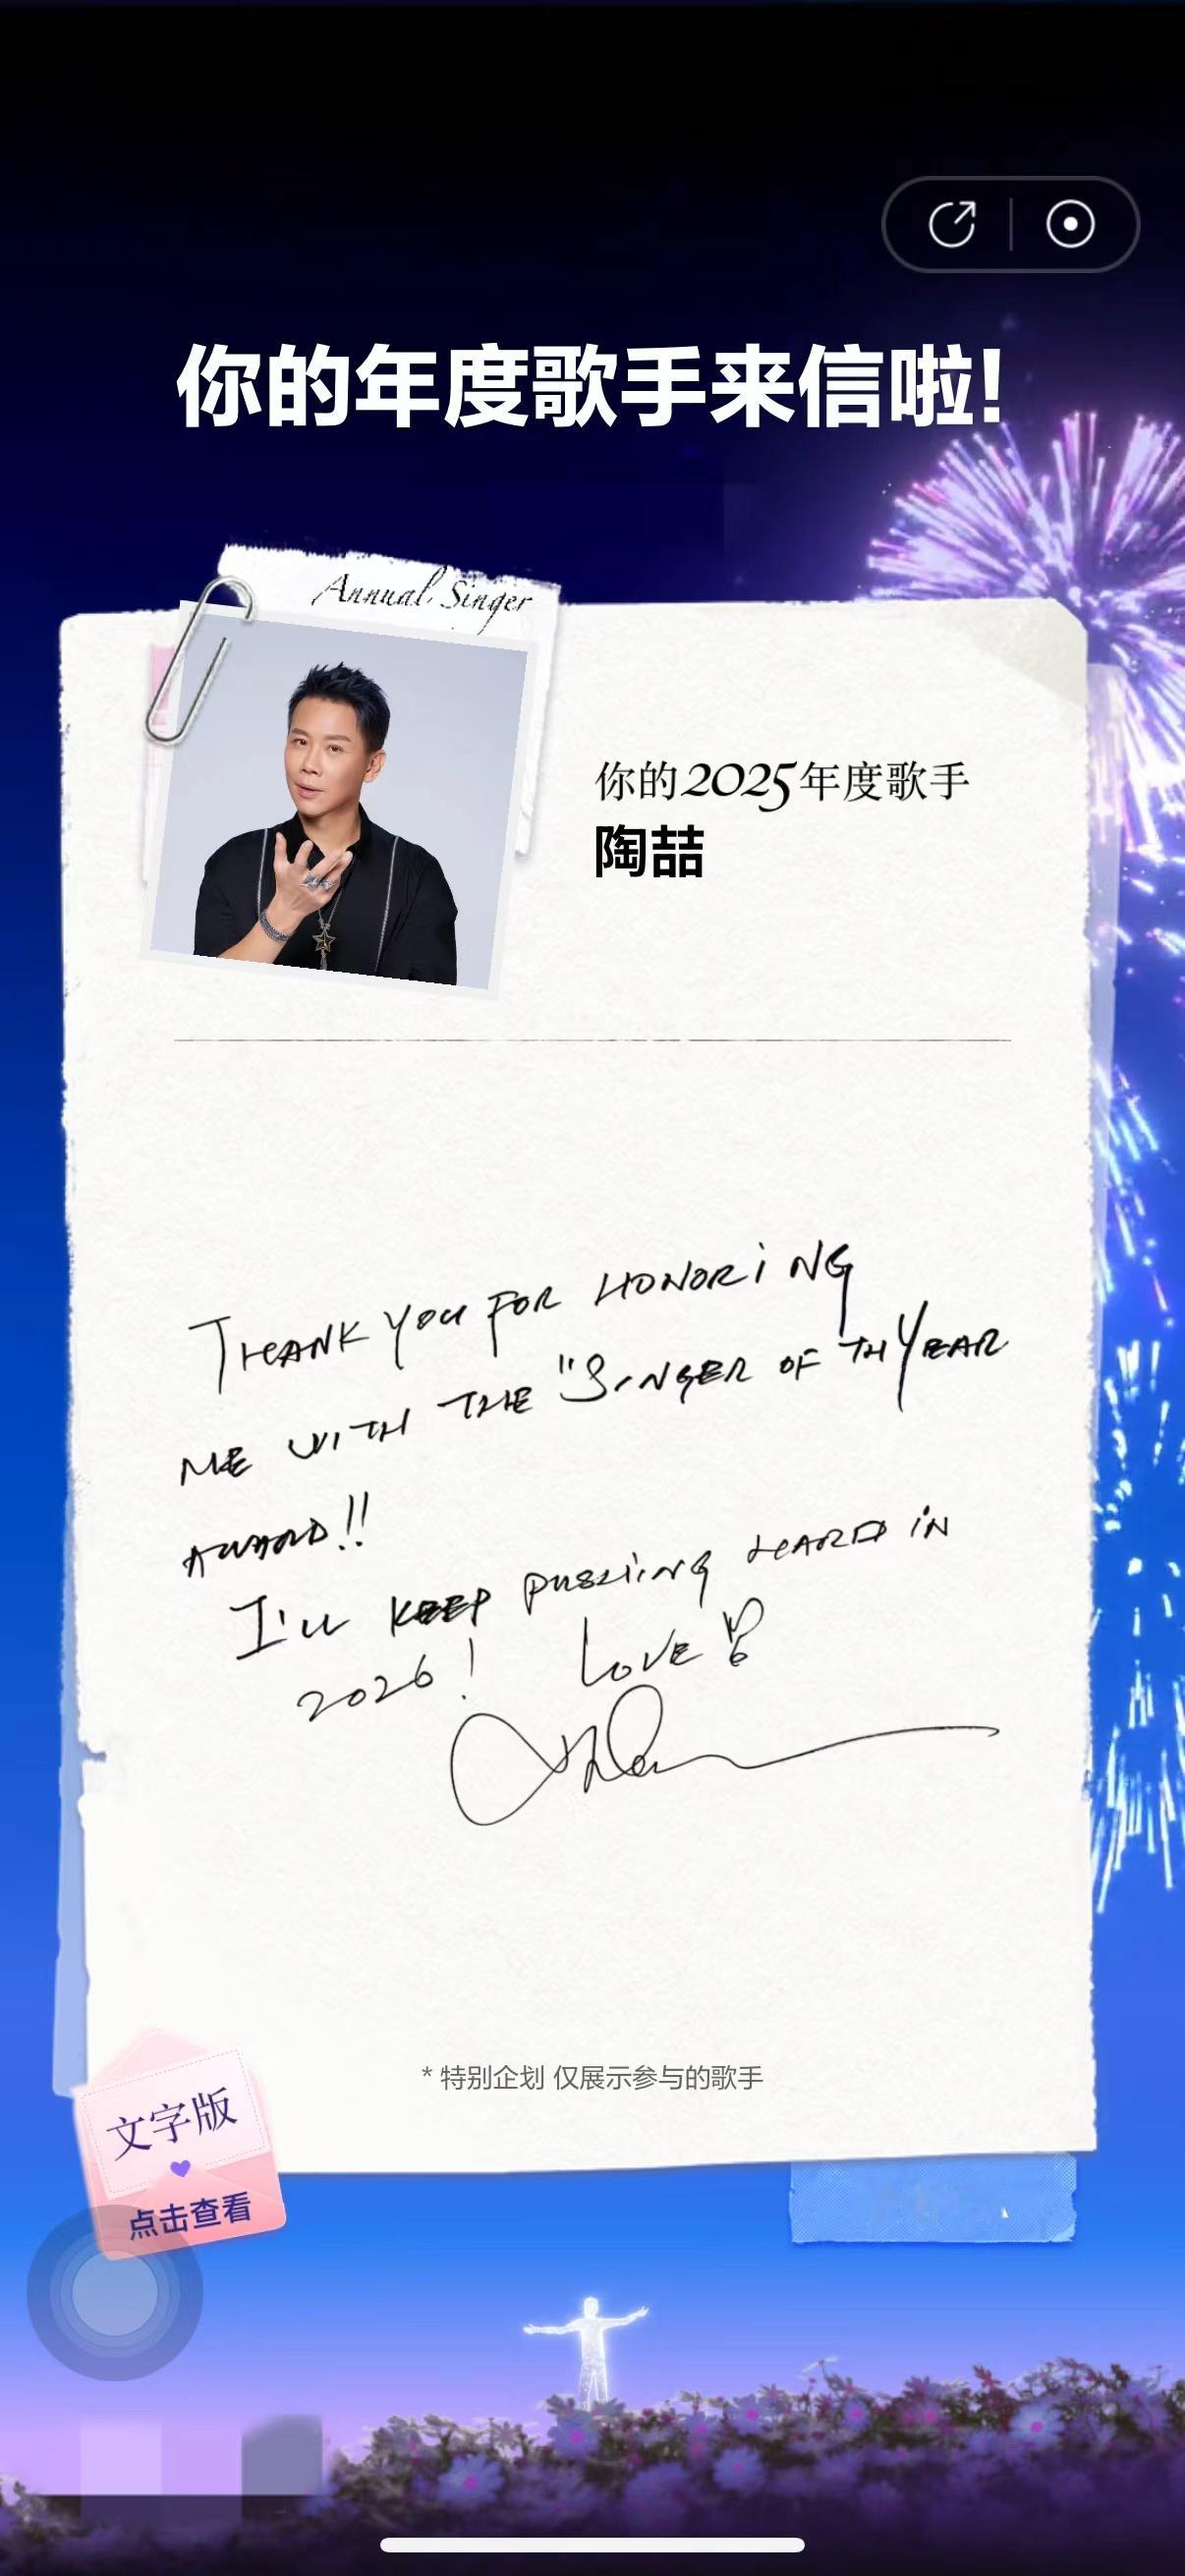 你的年度歌手来信啦!
Annual Singer
你的2025年度歌手
陶喆
THANK YOU FOR HONORiNG
ME WITH THE "SINGER OF TH YEAR
AWARD!!
I'LL KEEP PUSHiNG HARD iN
2026! LOVE
* 特别企划 仅展示参与的歌手
文字版
点击查看